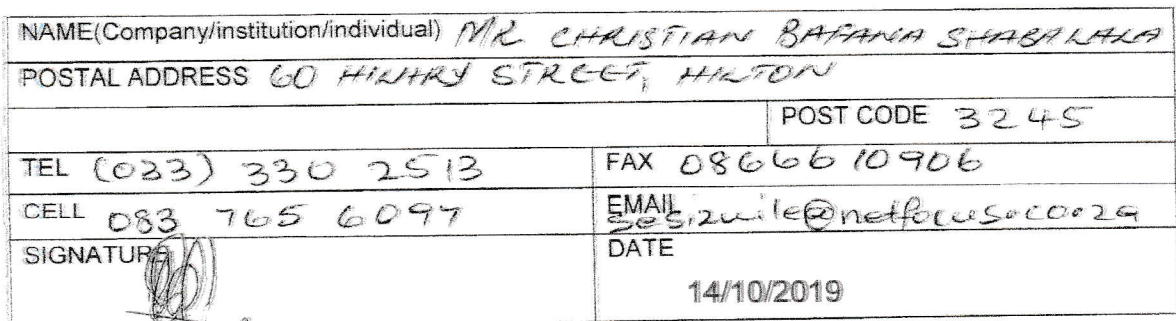 NAME(Company/institution/individual) MR CHRISTIAN BAFANA SHABALALA
POSTAL ADDRESS 60 HILARY STREET, HILTON
POST CODE 3245
TEL (033) 330 2513
FAX 0866610906
CELL 083 765 6097
EMAIL sesizwile@netfocus.co.za
SIGNATURE
DATE
14/10/2019